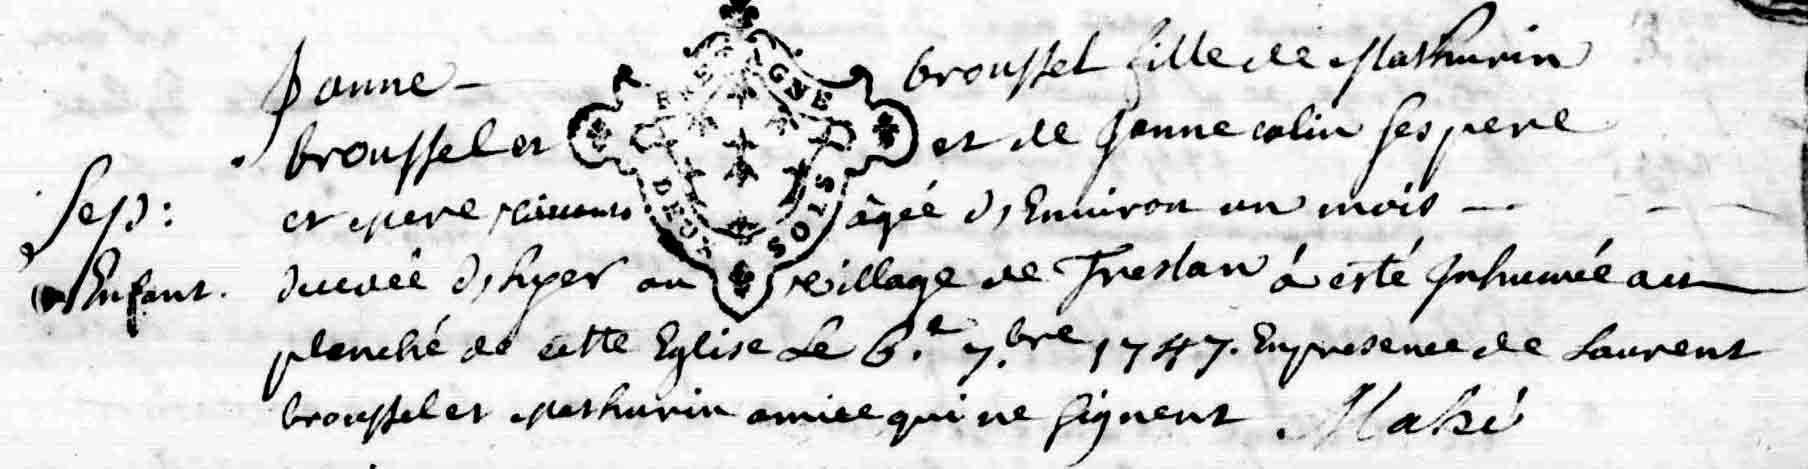 Janne broussel fille de Mathurin
broussel et et de Janne colin ses pere
et mere âgée d'Environ un mois
Sep:
Enfant.
decedée d'hyer au village de Treslan a esté Inhumée au
planché de cette Eglise Le 6.e 7.bre 1747. En presence de Laurent
broussel et Mathurin amice qui ne signent Mahé
BRETAGNE
DEUX SOLS